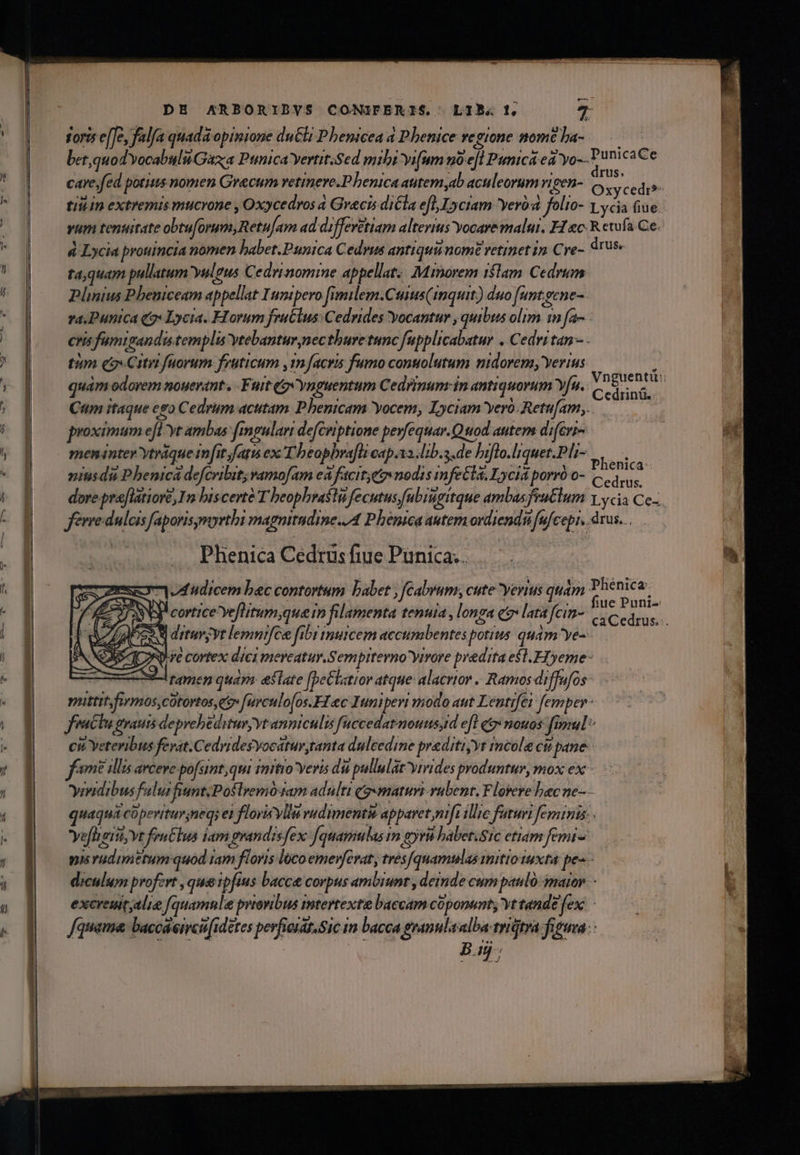 DE ARBORIBVS CONIFERIS. LIB. I. 7
foris eſſe, falſa quadā opinione ducti Phenicea à Phenice regione nomē ha-
bet, quod vocabulū Gaza Punica vertit. Sed mihi viſum nō eſt Punicā eā vo-
care, ſed potius nomen Græcum retinere. Phenica autem, ab aculeorum rigen-
tiū in extremis mucrone, Oxycedros à Græcis dicta eſt, Lyciam verò à folio-
rum tenuitate obtuſorum, Retuſam ad differētiam alterius vocare malui. Hæc
à Lycia prouincia nomen habet. Punica Cedrus antiquū nomē retinet in Cre-
ta, quam pullatum vulgus Cedri nomine appellat. Minorem iſtam Cedrum
Plinius Pheniceam appellat Iunipero ſimilem. Cuius (inquit) duo ſunt gene-
ra, Punica & Lycia. Horum fructus Cedrides vocantur, quibus olim in ſa-
cris fumigandis templis vtebantur, nec thure tunc ſupplicabatur. Cedri tan-
tùm & Citri ſuorum fruticum, in ſacris fumo conuolutum nidorem, verius
quàm odorem nouerant. Fuit & vnguentum Cedrinum in antiquorum vſu.
Cum itaque ego Cedrum acutam Phenicam vocem, Lyciam verò Retuſam,
proximum eſt vt ambas ſingulari deſcriptione perſequar. Quod autem diſcri-
men inter vtrāque inſit, ſatis ex Theophraſti cap. xx. lib. 3. de hiſto. liquet. Pli-
nius dū Phenicā deſcribit, ramoſam eā facit, & nodis infectā, Lyciā porrò o-
dore præſtātiorē, In his certè Theophraſtū ſecutus, ſubiūgitque ambas fructum
ferre dulcis ſaporis, myrthi magnitudine. A Phenica autem ordiendū ſuſcepi.
PunicaCe
drus.
Oxycedr9
Lycia ſiue
Retuſa Ce.
drus.
Vnguentū
Cedrinū.
Phenica
Cedrus.
Lycia Ce-
drus.
Phenica Cedrus ſiue Punica.
Audicem hæc contortum habet, ſcabrum, cute verius quàm
cortice veſtitum, quæ in filamenta tenuia, longa & lata ſcin-
ditur, vt lemniſcæ ſibi inuicem accumbentes potius quàm ve-
rè cortex dici mereatur. Sempiterno virore prædita eſt. Hyeme
tamen quàm æſtate ſpectatior atque alacrior. Ramos diffuſos
mittit, firmos, cōtortos, & ſurculoſos. Hæc Iuniperi modo aut Lentiſci ſemper
fructu grauis deprehēditur, vt anniculis ſuccedat nouus, id eſt & nouos ſimul
cū veteribus ferat. Cedrides vocātur, tanta dulcedine præditi, vt incolæ cū pane
famē illis arcere poſsint, qui initio veris dū pullulāt virides produntur, mox ex
viridibus fului fiunt. Poſtremò iam adulti & maturi rubent. Florere hæc ne-
quaquā cōperitur, neq; ei floris vllū rudimentū apparet, niſi illic futuri ſeminis
veſtigiū, vt fructus iam grandis ſex ſquamulas in gyrū habet. Sic etiam ſemi-
nis rudimētum quod iam floris loco emerſerat, tres ſquamulas initio iuxta pe-
diculum profert, quæ ipſius baccæ corpus ambiunt, deinde cum paulò maior
excreuit, aliæ ſquamulæ prioribus intertextæ baccam cōponunt, vt tandē ſex
ſquamæ baccā circūſidētes perficiāt. Sic in bacca granula alba triq̃tra figura
Phenica
ſiue Puni-
ca Cedrus.
B iij